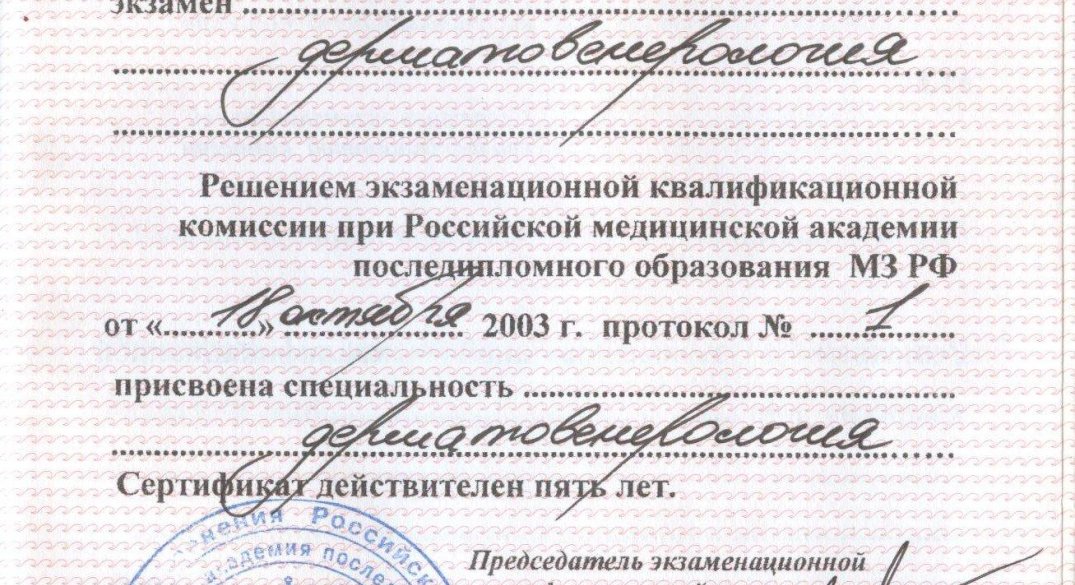 экзамен
дерматовенерология
Решением экзаменационной квалификационной
комиссии при Российской медицинской академии
последипломного образования МЗ РФ
от «18» октября 2003 г. протокол № 1
присвоена специальность
дерматовенерология
Сертификат действителен пять лет.
Председатель экзаменационной